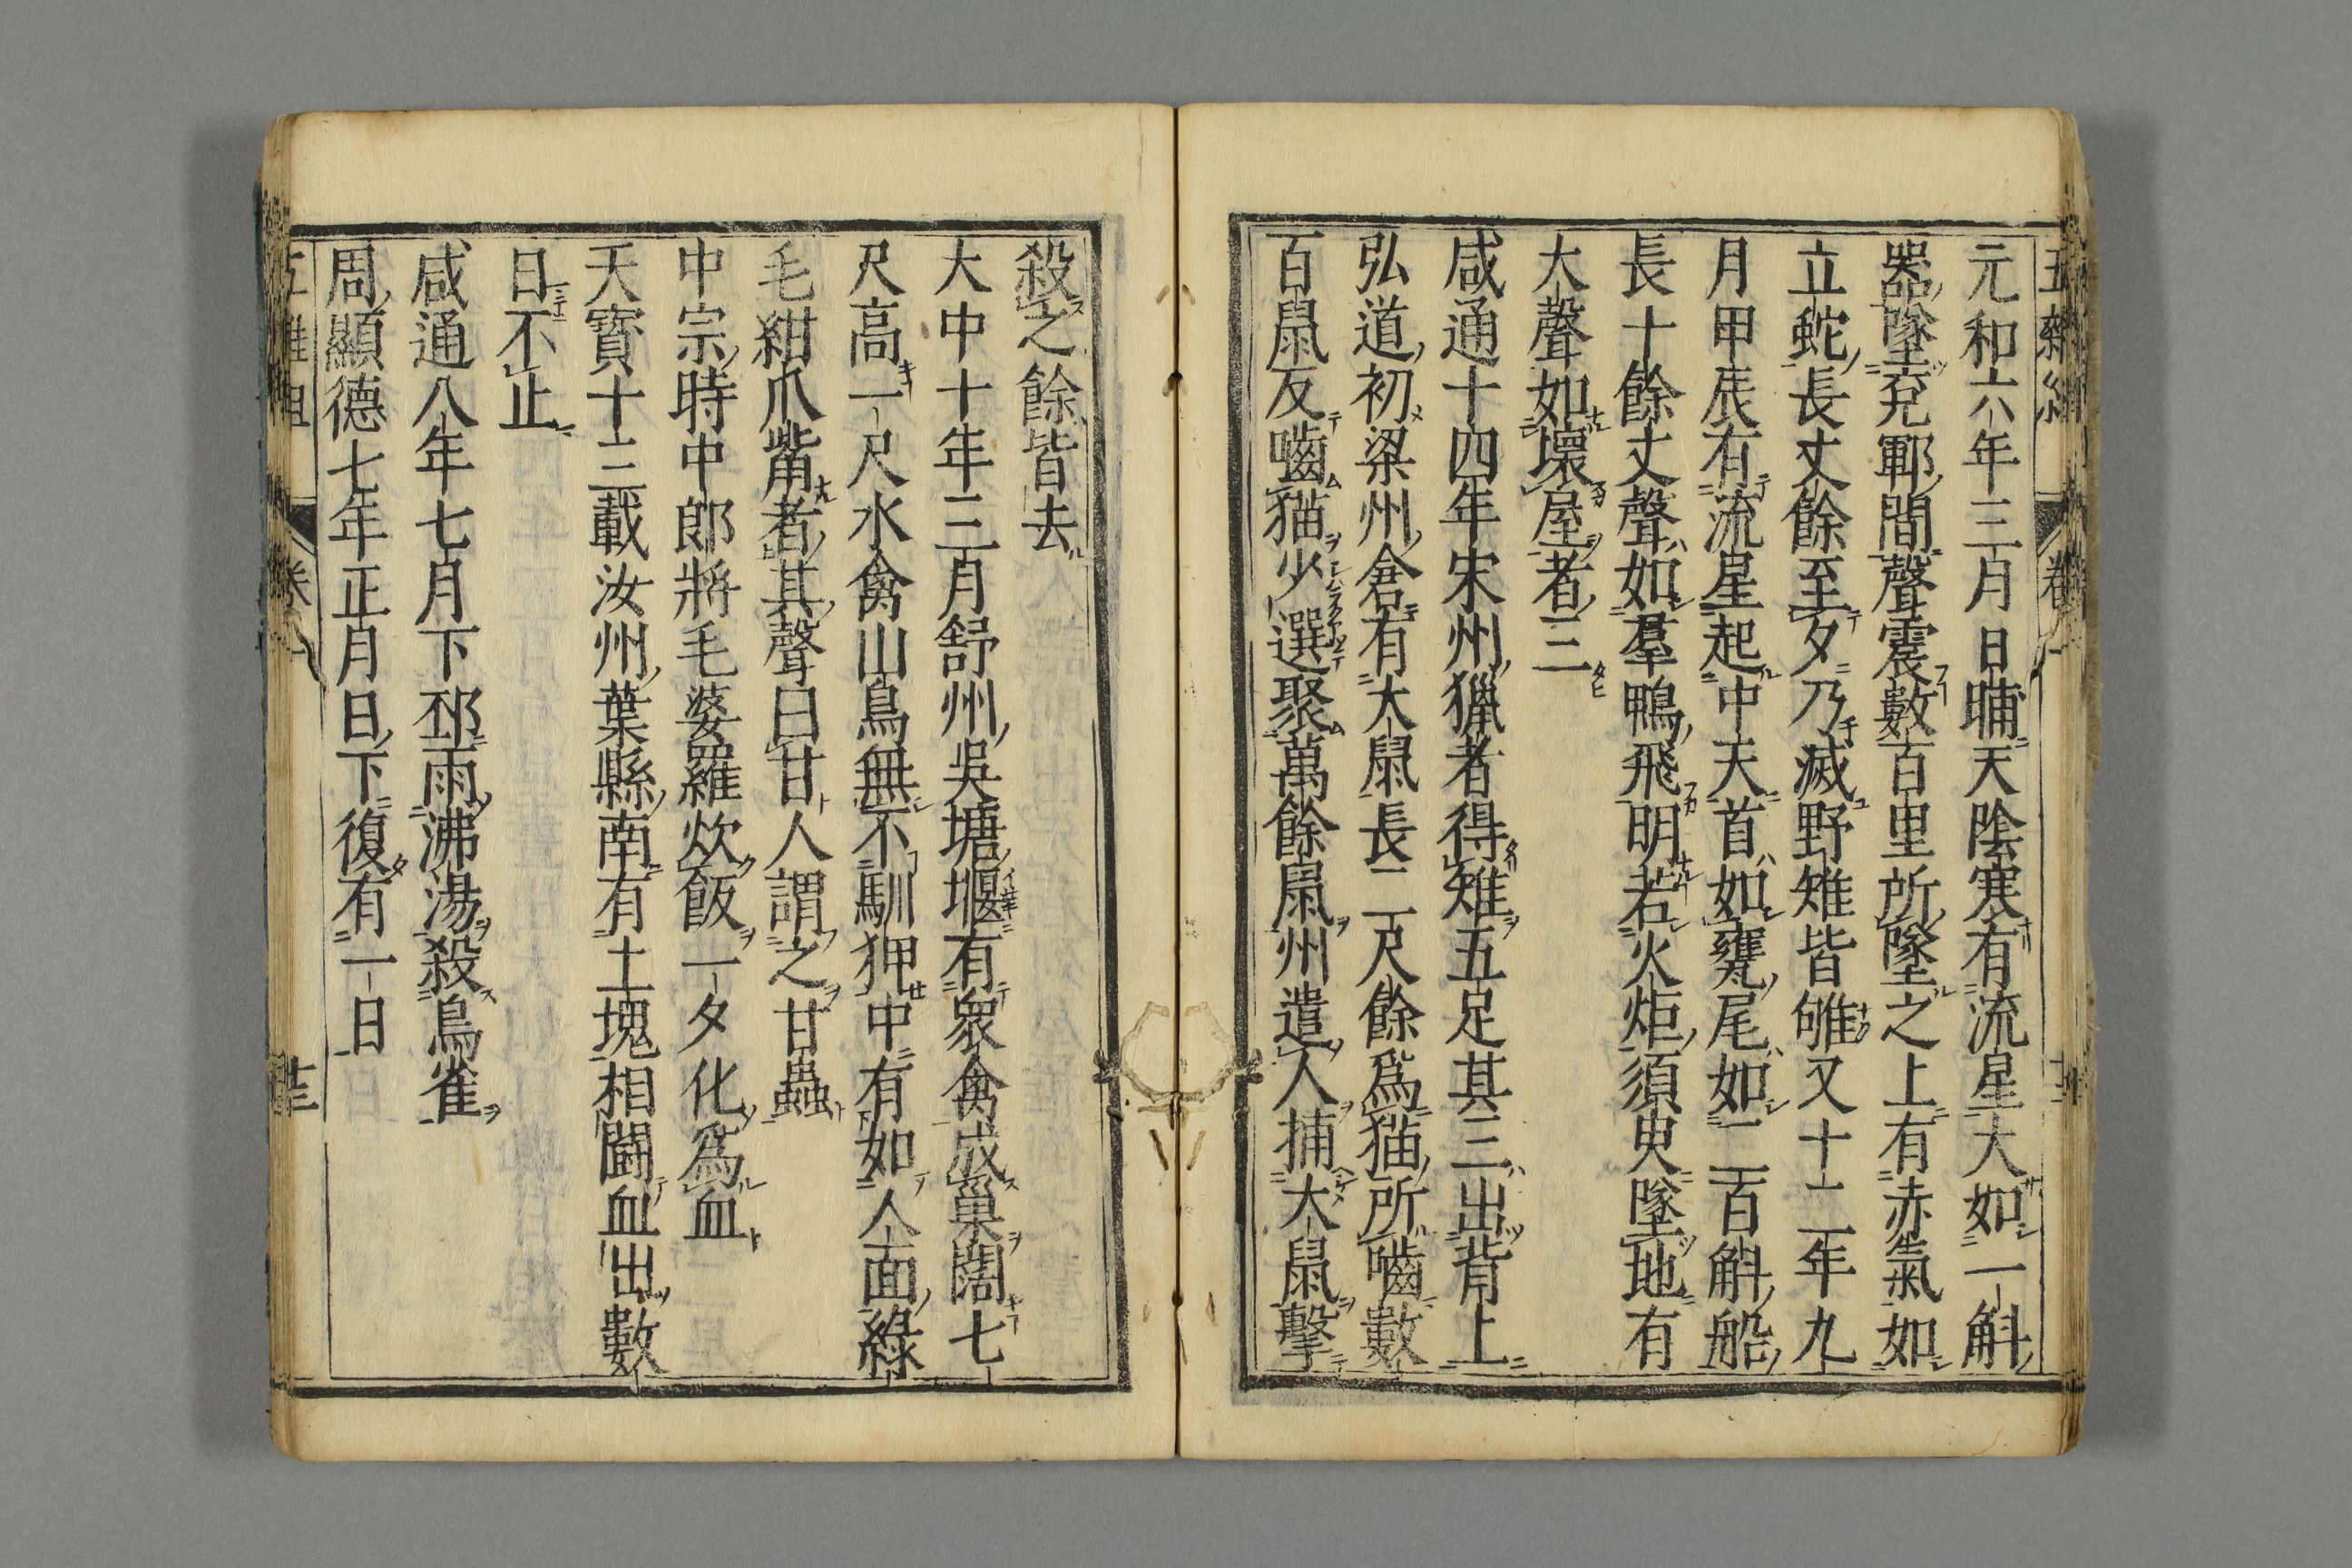 元和六年三月日晡天陰寒有流星大如一斛
器墜兗鄆間聲震數百里所墜之上有赤氣如
立蛇長丈餘至夕乃滅野雉皆雊又十二年九
月甲辰有流星起中天首如甕尾如二百斛船
長十餘丈聲如羣鴨飛明若火炬須臾墜地有
大聲如壞屋者三
咸通十四年宋州獵者得雉五足其三出背上
弘道初梁州倉有大鼠長二尺餘爲猫所嚙數
百鼠反嚙猫少選聚萬餘鼠州遣人捕大鼠擊
殺之餘皆去
大中十年三月舒州吳塘堰有衆禽成巢闊七
尺高一尺水禽山鳥無不馴狎中有如人面綠
毛紺爪觜者其聲曰甘人謂之甘蟲
中宗時中郎將毛婆羅炊飯一夕化爲血
天寶十三載汝州葉縣南有土塊相鬬血出數
日不止
咸通八年七月下邳雨沸湯殺鳥雀
周顯德七年正月日下復有一日